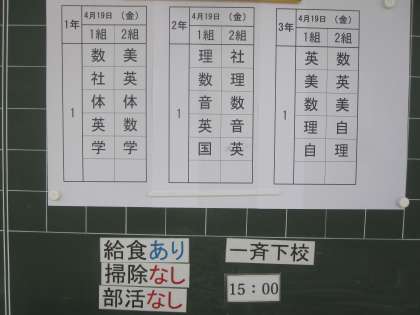 1年 4月19日 (金)
1組 2組
1
数 美
社 英
体 体
英 数
学 学
2年 4月19日 (金)
1組 2組
1
理 社
数 理
音 数
英 音
国 英
3年 4月19日 (金)
1組 2組
1
英 数
美 英
数 美
理 自
自 理
給食あり
掃除なし
部活なし
一斉下校
15:00